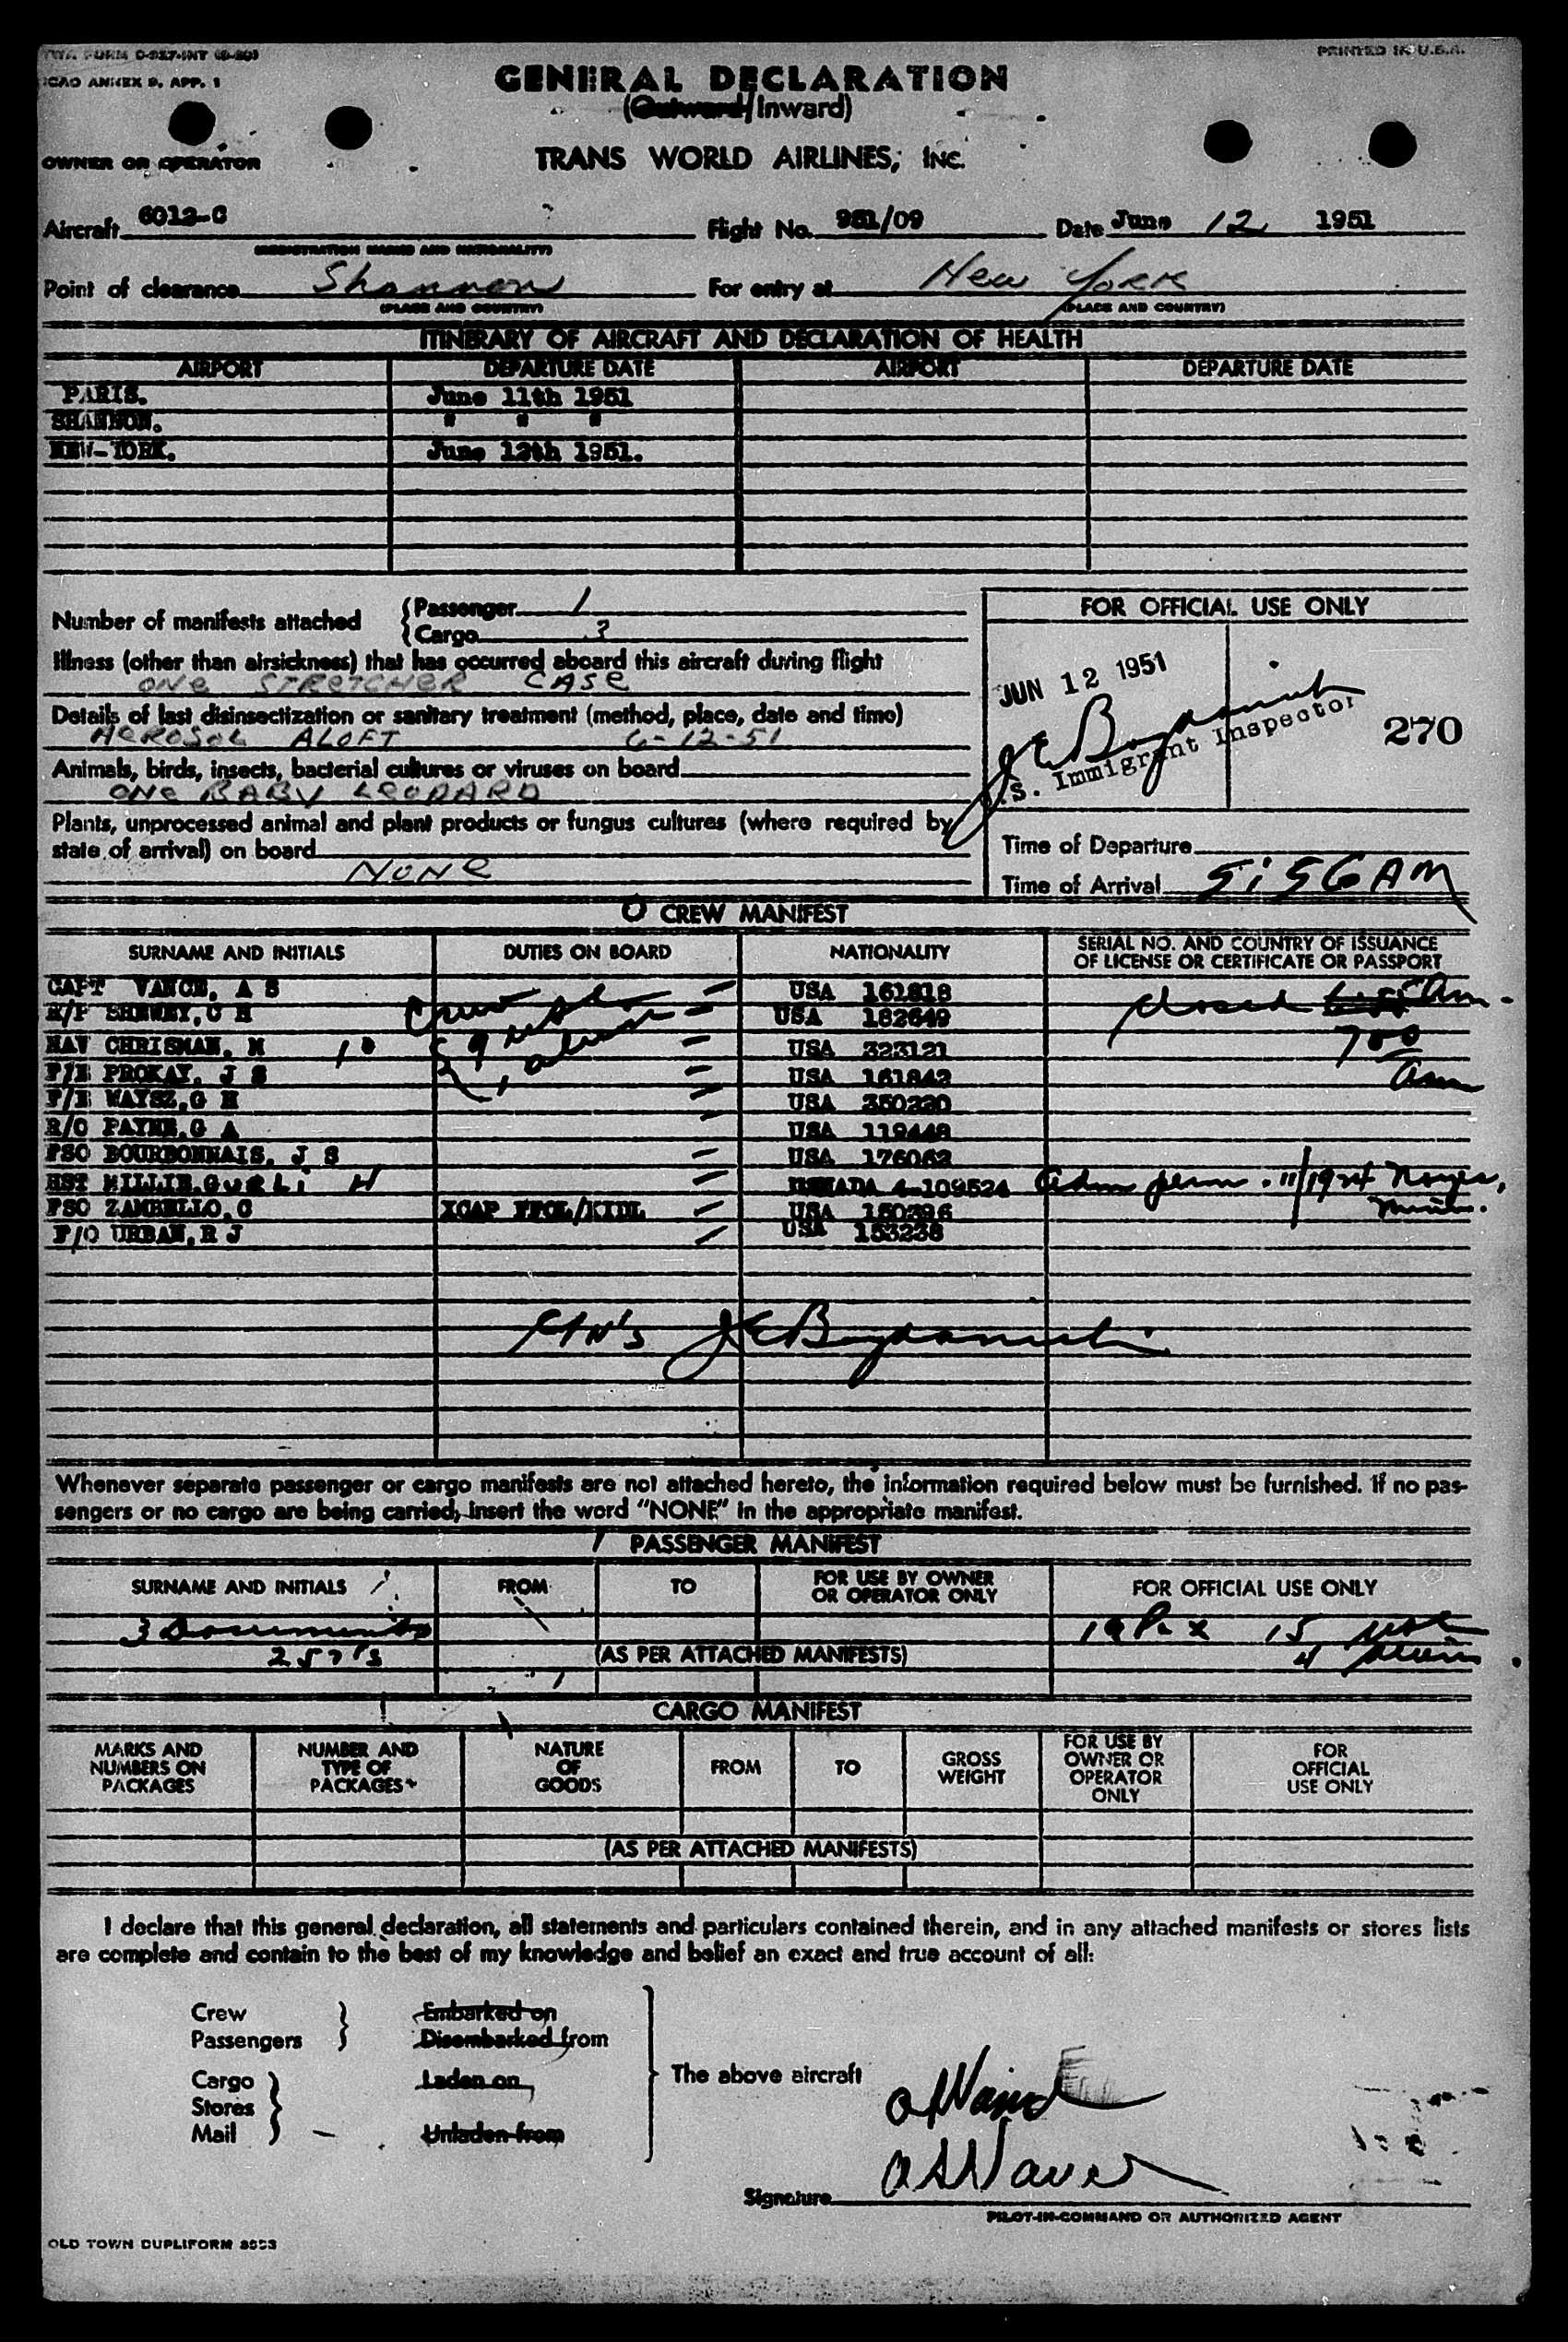 TWA FORM O-927-INT
PRINTED IN U.S.A.
ICAO ANNEX 9, APP. 1
GENERAL DECLARATION
(Outward/Inward)
OWNER OR OPERATOR
TRANS WORLD AIRLINES, INC.
Aircraft 6012-C Flight No. 951/09 Date June 12 1951
(REGISTRATION MARKS AND NATIONALITY)
Point of clearance Shannon For entry at New York
(PLACE AND COUNTRY) (PLACE AND COUNTRY)
ITINERARY OF AIRCRAFT AND DECLARATION OF HEALTH
AIRPORT DEPARTURE DATE AIRPORT DEPARTURE DATE
PARIS. June 11th 1951
SHANNON. " " "
NEW-YORK. June 12th 1951.
Number of manifests attached
Passenger 1
Cargo 3
Illness (other than airsickness) that has occurred aboard this aircraft during flight
ONE STRETCHER CASE
Details of last disinsectization or sanitary treatment (method, place, date and time)
AEROSOL ALOFT 6-12-51
Animals, birds, insects, bacterial cultures or viruses on board
ONE BABY LEOPARD
Plants, unprocessed animal and plant products or fungus cultures (where required by
state of arrival) on board
NONE
FOR OFFICIAL USE ONLY
JUN 12 1951
270
.S. Immigrant Inspector
Time of Departure
Time of Arrival 5:56 AM
CREW MANIFEST
SURNAME AND INITIALS DUTIES ON BOARD NATIONALITY SERIAL NO. AND COUNTRY OF ISSUANCE
OF LICENSE OR CERTIFICATE OR PASSPORT
CAPT VANCE, A S USA 161818 closed Am.
R/P SHEWEY, C H USA 182649 700
NAV CHRISMAN, M 10 USA 323121 am
F/E PROKAY, J S USA 161842
F/E WAYSZ, G H USA 350220
R/O PAYNE, G A USA 119448
FSO BOURBONNAIS, J S USA 176062
HST MILLIE, GURLI H CANADA 4-109524 Adm perm. 11/1924 Noyes,
FSO ZAMBELLO, C XCAP FFOL/KIDL USA 150396 Minn.
F/O URBAN, R J USA 153238
Crew
9 usc
1 alien
Whenever separate passenger or cargo manifests are not attached hereto, the information required below must be furnished. If no pas-
sengers or no cargo are being carried, insert the word "NONE" in the appropriate manifest.
PASSENGER MANIFEST
SURNAME AND INITIALS FROM TO FOR USE BY OWNER
OR OPERATOR ONLY FOR OFFICIAL USE ONLY
3 Documents 19 Pax 15 usc
257's (AS PER ATTACHED MANIFESTS) 4 aliens
CARGO MANIFEST
MARKS AND
NUMBERS ON
PACKAGES
NUMBER AND
TYPE OF
PACKAGES
NATURE
OF
GOODS
FROM
TO
GROSS
WEIGHT
FOR USE BY
OWNER OR
OPERATOR
ONLY
FOR
OFFICIAL
USE ONLY
(AS PER ATTACHED MANIFESTS)
I declare that this general declaration, all statements and particulars contained therein, and in any attached manifests or stores lists
are complete and contain to the best of my knowledge and belief an exact and true account of all:
Crew Embarked on
Passengers Disembarked from
Cargo Laden on
Stores
Mail Unladen from
The above aircraft
Signature
PILOT-IN-COMMAND OR AUTHORIZED AGENT
OLD TOWN DUPLIFORM